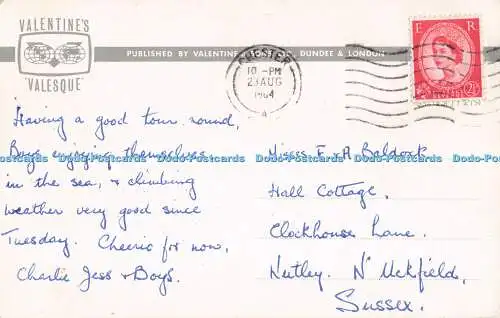 VALENTINE'S
"VALESQUE"
PUBLISHED BY VALENTINE & SONS LTD., DUNDEE & LONDON
10 - PM
23 AUG
1964
A
E R
2½D
Having a good tour round,
Boys enjoying themselves
in the sea, & climbing
weather very good since
Tuesday. Cheerio for now,
Charlie Jess & Boys.
Misses E & A Baldock
Hall Cottage,
Clockhouse Lane.
Nutley. Nr Uckfield,
Sussex.
Dodo-Postcards Dodo-Postcards Dodo-Postcards Dodo-Postcards Dodo-Postcards Dodo-Postcards